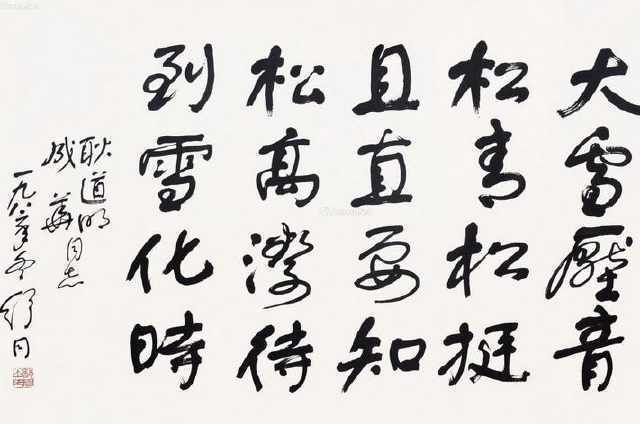 大雪壓青
松青松挺
且直要知
松高潔待
到雪化時
耿道明同志
成華
一九八六年冬舒同